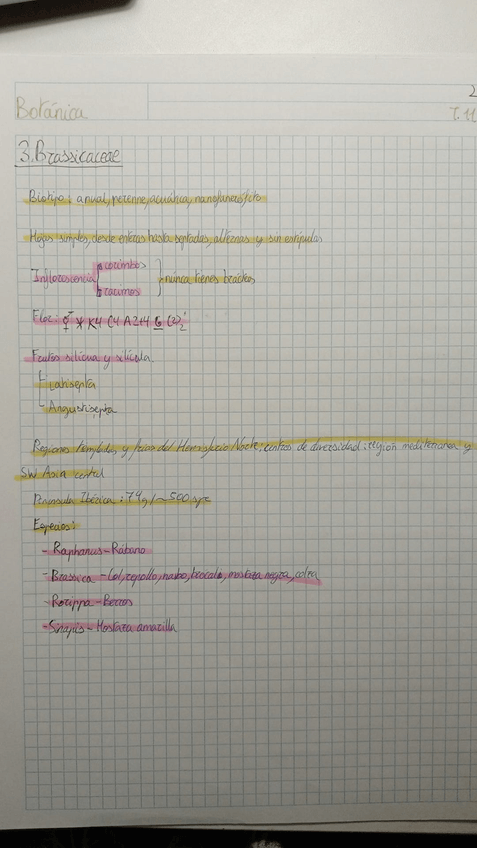 2
Botánica
T.11
3.Brassicaceae
Biotipo: anual, perenne, acuática, nanofanerófito
Hojas simples, desde enteras hasta septadas, alternas y sin estípulas
Inflorescencia
corimbos
racimos
nunca tienes brácteas
Flor: ⚥ * K4 C4 A2+4 G (2)
Frutos silicua y silícula.
- Latisepta
- Angustisepta
Regiones templadas y frías del Hemisferio Norte; centros de diversidad: región mediterranea y
SW Asia central
Península Ibérica: 74g/~500 spc
Especies:
- Raphanus - Rábano
- Brassica - Col, repollo, nabo, brocoli, mostaza negra, colza
- Rorippa - Berros
- Sinapis - Mostaza amarilla